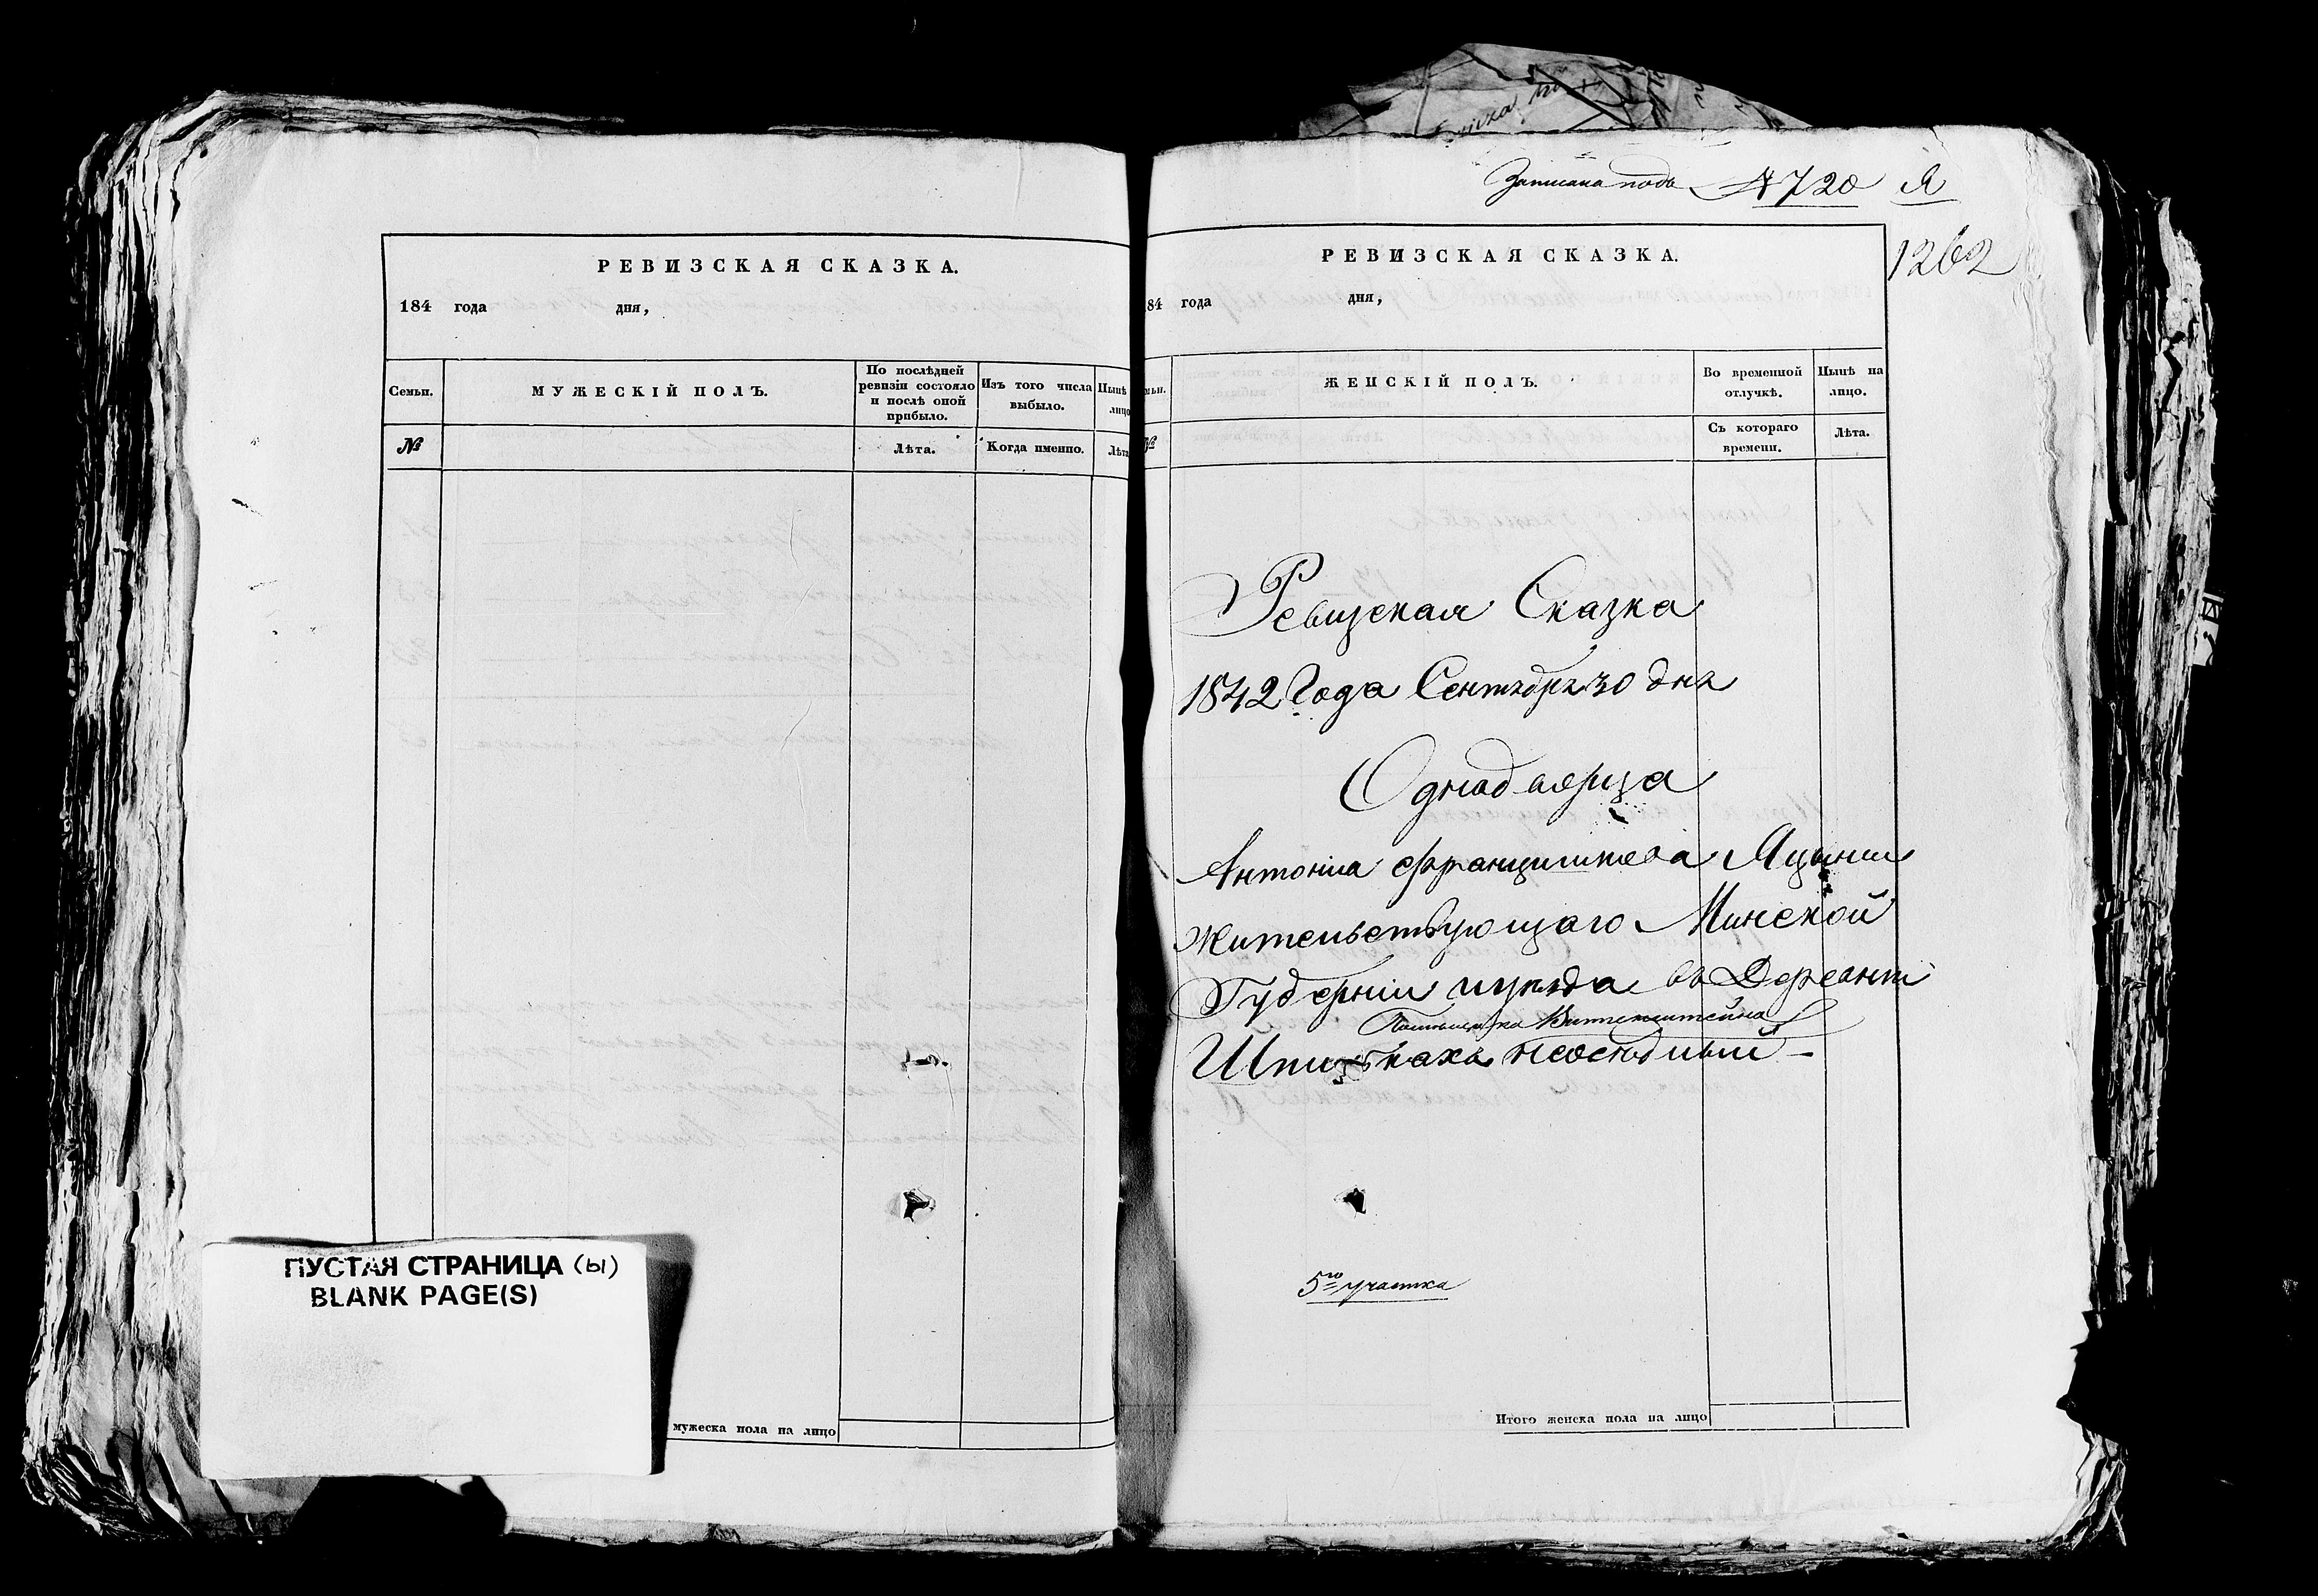 РЕВИЗСКАЯ СКАЗКА.
184 года дня,
Семьи.
МУЖЕСКІЙ ПОЛЪ.
По послѣдней
ревизіи состояло
и послѣ оной
прибыло.
Изъ того числа
выбыло.
Нынѣ
лицо
№
Лѣта.
Когда именно.
Лѣта
мужеска пола на лицо
ПУСТАЯ СТРАНИЦА (ы)
BLANK PAGE(S)
Записана подъ 4720 Я
1262
РЕВИЗСКАЯ СКАЗКА.
84 года дня,
мьи.
ЖЕНСКІЙ ПОЛЪ.
Во временной
отлучкѣ.
Нынѣ на
лицо.
№
Съ котораго
времени.
Лѣта.
Ревизская Сказка
1842 Года Сентября 30 дня
Однодворца
Антонія Францишкова
Жительствующаго Минской
Губерніи уѣзда въ Деревни
Помѣщика Витгенштейна
Шпильках неоседлый
5го участка
Итого женска пола на лицо